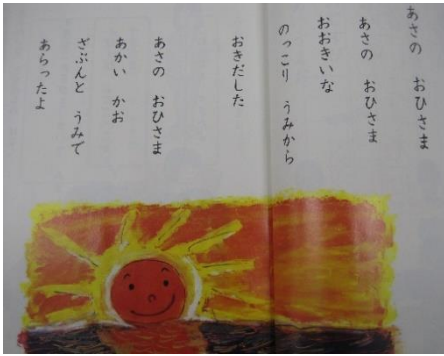 あさの おひさま
あさの おひさま
おおきいな
のっこり うみから
おきだした
あさの おひさま
あかい かお
ざぶんと うみで
あらったよ